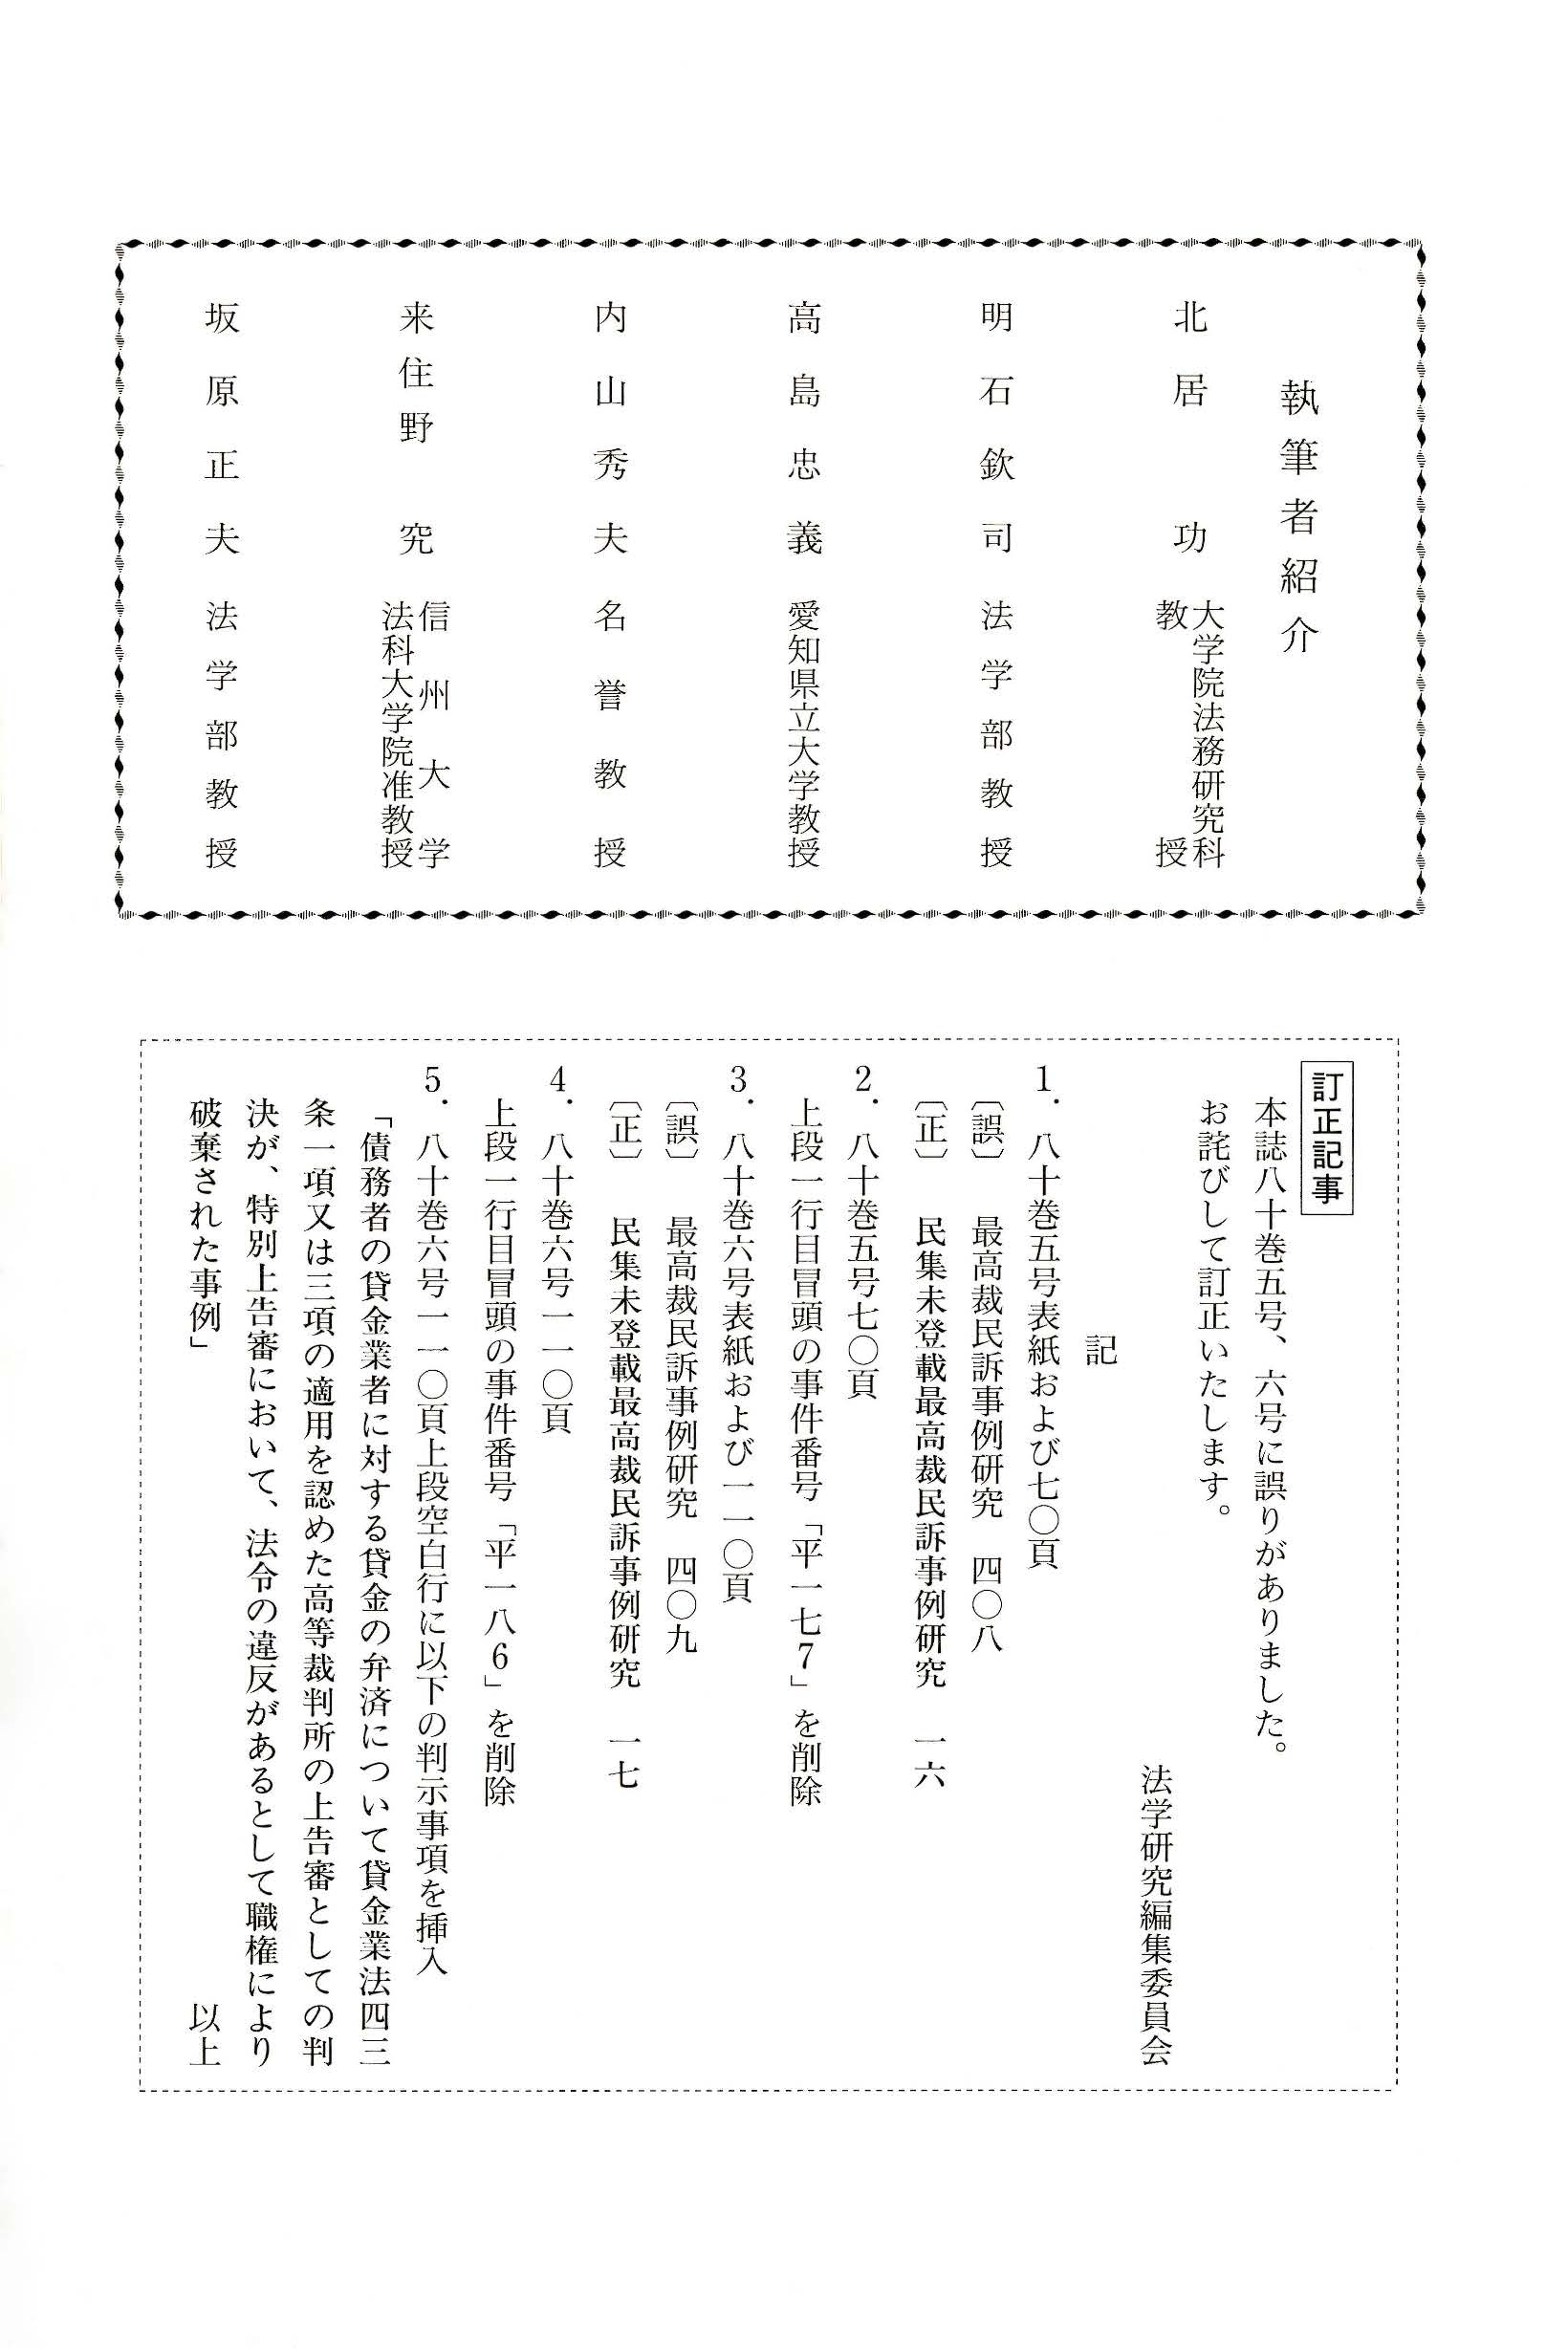 執筆者紹介
北居　功　大学院法務研究科
教授
明石欽司　法学部教授
高島忠義　愛知県立大学教授
内山秀夫　名誉教授
来住野　究　信州大学
法科大学院准教授
坂原正夫　法学部教授
訂正記事
本誌八十巻五号、六号に誤りがありました。
お詫びして訂正いたします。
法学研究編集委員会
記
1．八十巻五号表紙および七〇頁
〔誤〕　最高裁民訴事例研究　四〇八
〔正〕　民集未登載最高裁民訴事例研究　一六
2．八十巻五号七〇頁
上段一行目冒頭の事件番号「平一七7」を削除
3．八十巻六号表紙および一一〇頁
〔誤〕　最高裁民訴事例研究　四〇九
〔正〕　民集未登載最高裁民訴事例研究　一七
4．八十巻六号一一〇頁
上段一行目冒頭の事件番号「平一八6」を削除
5．八十巻六号一一〇頁上段空白行に以下の判示事項を挿入
「債務者の貸金業者に対する貸金の弁済について貸金業法四三
条一項又は三項の適用を認めた高等裁判所の上告審としての判
決が、特別上告審において、法令の違反があるとして職権により
破棄された事例」
以上